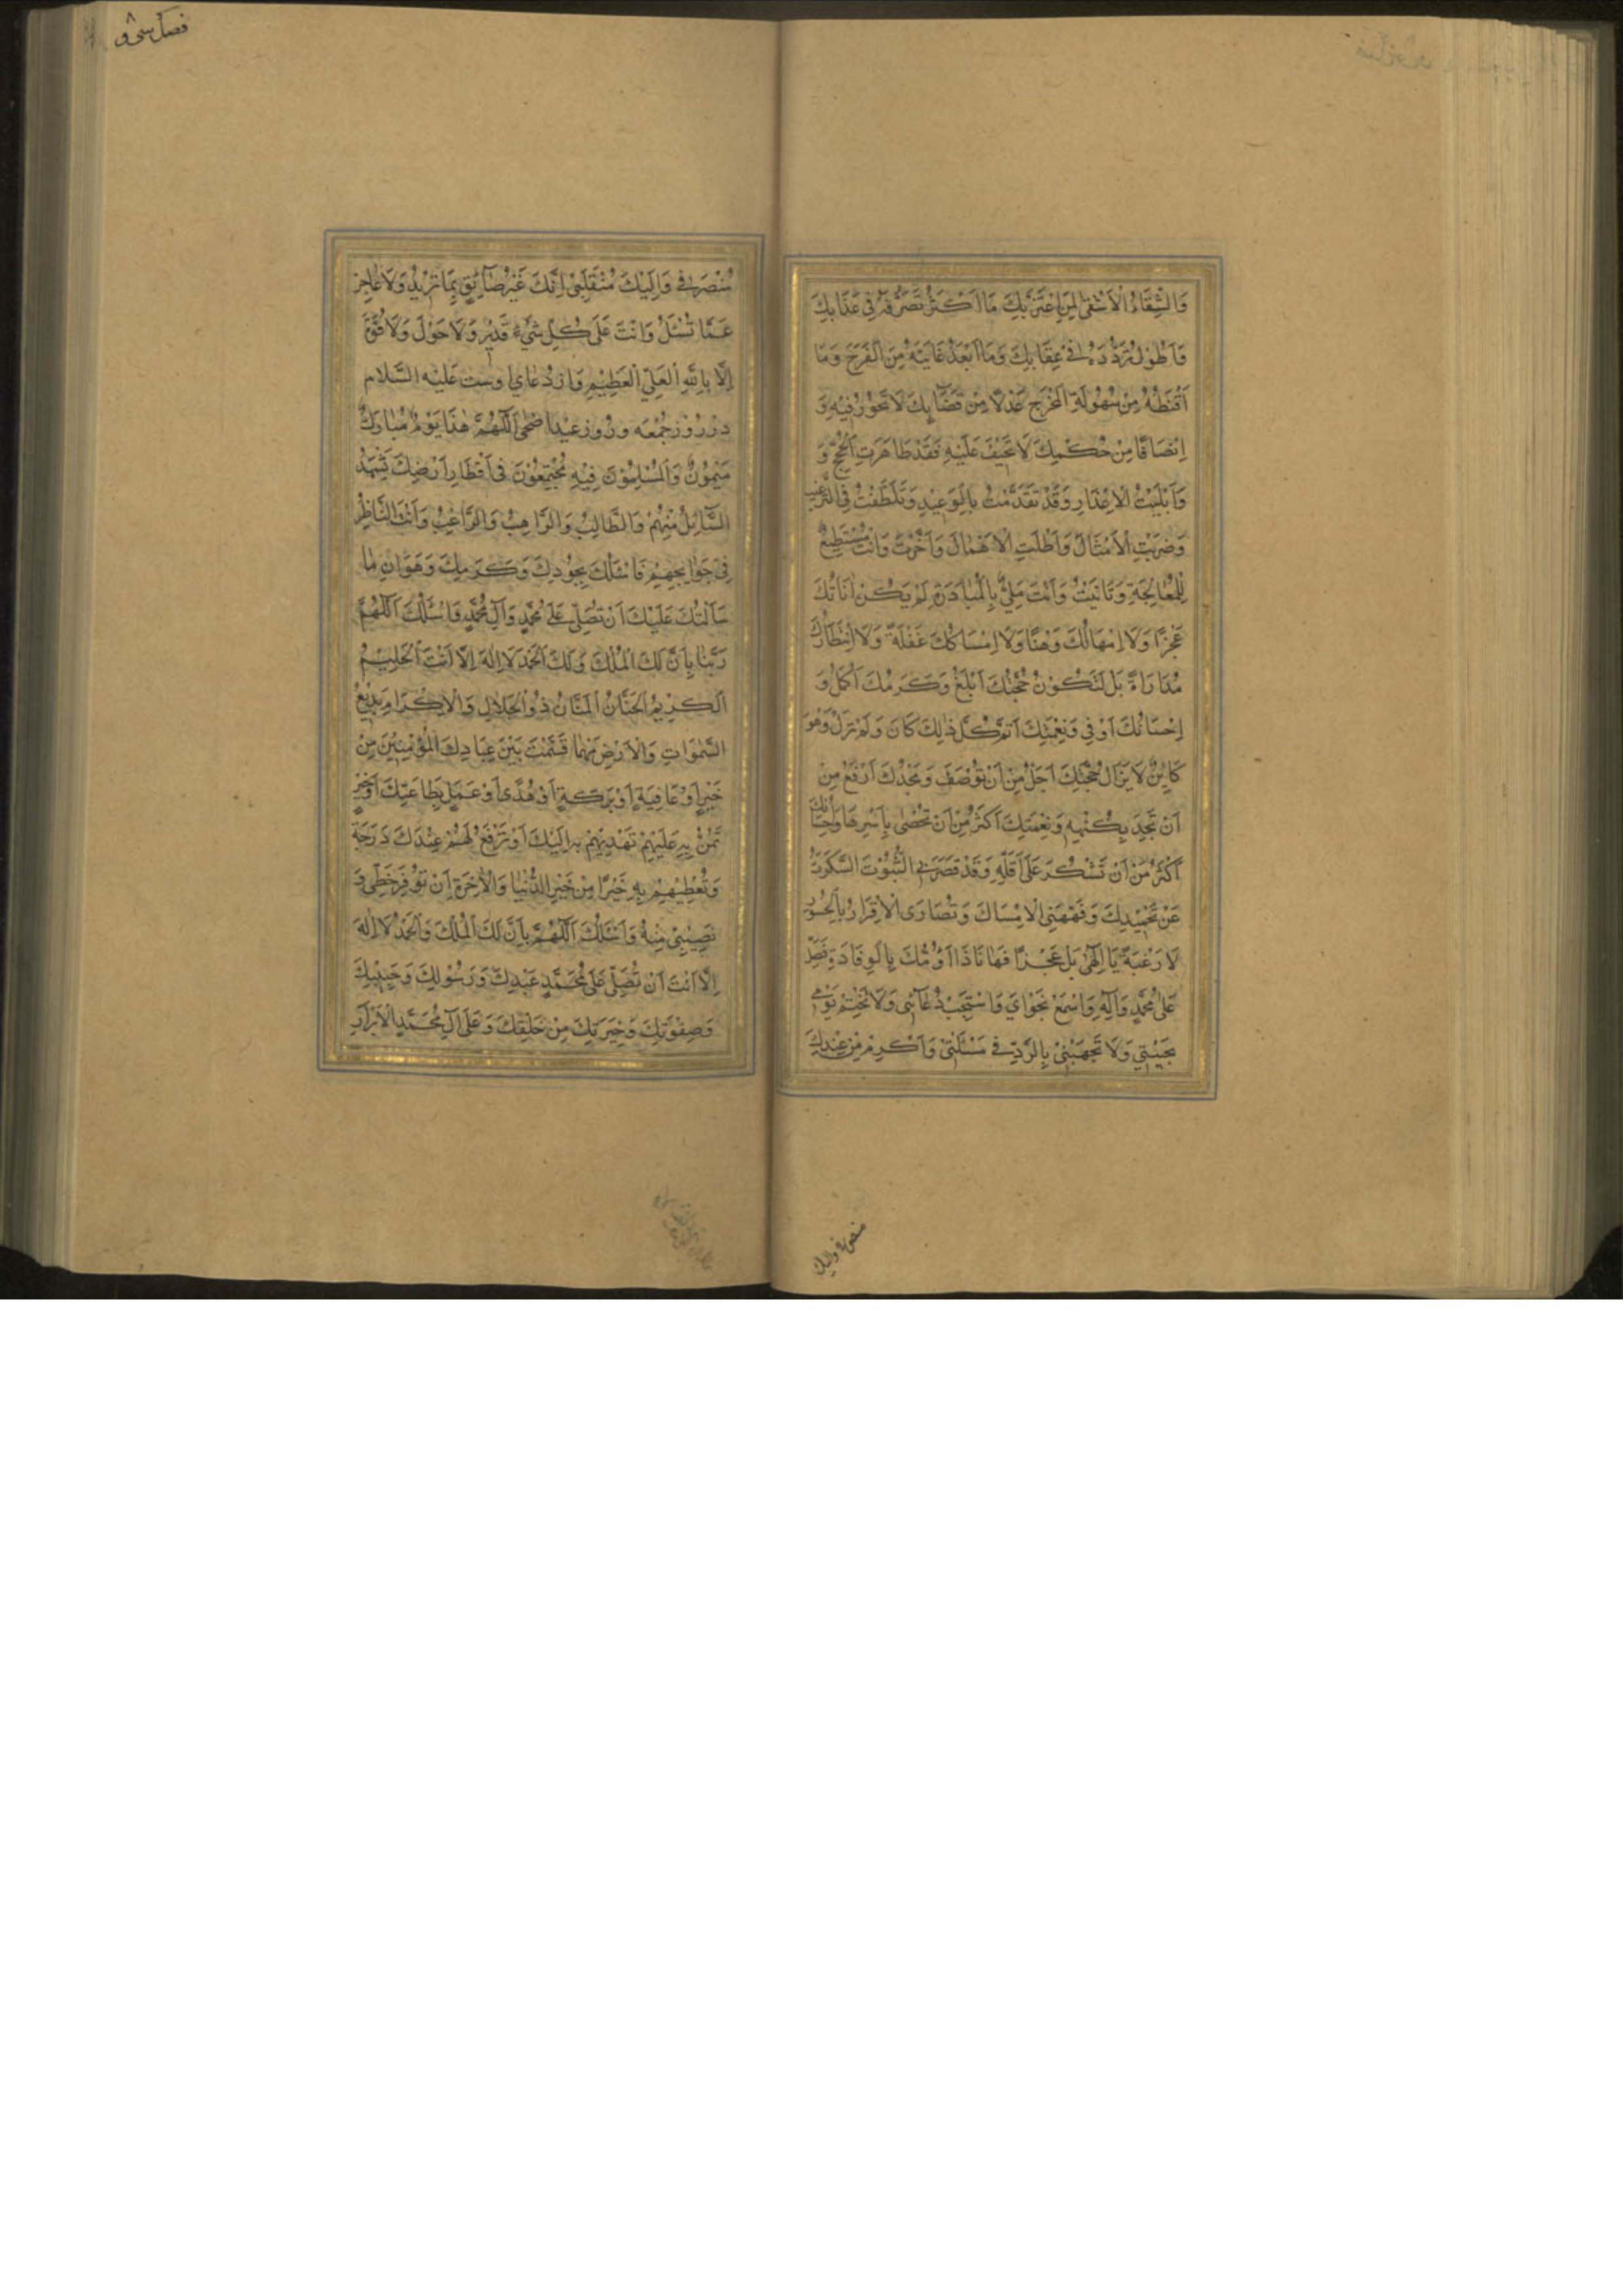 وَالشِّقَاءُ الْاَشْقٰى لِمَنِ اغْتَرَّ بِكَ مَا اَكْثَرَ تَصَرُّفَهُ فِي عَذَابِكَ
وَاَطْوَلَ تَرَدُّدَهُ فِي عِقَابِكَ وَمَا اَبْعَدَ غَايَتَهُ مِنَ الْفَرَجَ وَمَا
اَقْنَطَهُ مِنْ سُهُولَةِ الْمَخْرَجِ عَدْلًا مِنْ قَضَآئِكَ لَا تَجُوْرُ فِيْهِ وَ
اِنْصَافًا مِنْ حُكْمِكَ لَا تَحِيْفُ عَلَيْهِ فَقَدْ ظَاهَرَتِ الْحُجَجَ وَ
وَاَبْلَيْتُ الْاِعْذَارِ وَقَدْ تَقَدَّمْتُ بِالْوَعِيْدِ وَتَلَطَّفْتُ فِي التَّرْغِيبِ
وَضَرَبْتِ الْاَمْثَالَ وَاَطْلَتِ الْاَمْهَالَ وَاَخَّرْتَ وَاَنْتَ مُسْتَطِيْعٌ
لِلْمُعَالَجَةِ وَتَاَنَّيْتُ وَاَنْتَ مَلِيٌّ بِالْمُبَادَرَةِ لَمْ يَكُنْ اَنَاتُكَ
عَجْزًا وَلَا اِمْهَالُكَ وَهْنًا وَلَا اِمْسَاكُكَ غَفْلَةً وَلَا اِنْتِظَارُكَ
مُدَارَاةً بَلْ لَتَكُوْنُ حُجَّتُكَ اَبْلَغُ وَكَرَمُكَ اَكْمَلُ وَ
اِحْسَانُكَ اَوْفٰى وَنِعْمَتِكَ اَتَمَّ كُلَّ ذٰلِكَ كَانَ وَلَمْ تَزَلْ وَهُوَ
كَايِنٌ لَا يَزَال حُجَّتِكَ اَجَلُّ مِنْ اَنْ تُوْصَفَ وَمَجْدُكَ اَرْفَعُ مِنْ
اَنْ تَحَدَّ بِكُنْهِهِ وَنِعْمَتِكَ اَكْثَرُ مِنْ اَنْ تُحْصٰى بِاَسْرِهَا وَاِحْسَانُكَ
اَكْثَرُ مِنْ اَنْ تَشْكُرَ عَلٰى اَقَلِّهِ وَقَدْ قَصَرَنِي السُّكُوْتُ
عَنْ تَحْمِيْدِكَ وَفَهَّهَنِي الْاِمْسَاكَ وَقُصَارَى الْاِقْرَارُ بِالْحُسُوْرِ
لَا رَغْبَةً يَا اِلٰهِي بَلْ عَجْزًا فَهَا نَاذَا اَؤُمُّكَ بِالْوِفَادَةِ فَصَلِّ
عَلٰى مُحَمَّدٍ وَاٰلِهِ وَاسْمَعْ نَجْوَايَ وَاسْتَجِبْ دُعَآئِي وَلَا تَخْتِمْ يَوْمِي
بِخَيْبَتِي وَلَا تَجْبَهْنِي بِالرَّدِّ فِي مَسْئَلَتِي وَاَكْرِمْ مِنْ عِنْدِكَ
منصرفی والیک
فصل سی و
مُنْصَرَفِي وَاِلَيْكَ مُنْقَلَبِي اِنَّكَ غَيْرُ ضَآئِقٍ بِمَا تُرِيْدُ وَلَا عَاجِزٍ
عَمَّا تُسْئَلُ وَاَنْتَ عَلٰى كُلِّ شَيْءٍ قَدِيْرٌ وَلَا حَوْلَ وَلَا قُوَّةَ
اِلَّا بِاللهِ الْعَلِيِّ الْعَظِيْمِ وَاز دعاى اوست عليه السلام
در روز جمعه و روز عيد اضحى اَللّٰهُمَّ هٰذَا يَوْمٌ مُبَارَكٌ
مَيْمُونٌ وَالْمُسْلِمُوْنَ فِيْهِ مُجْتَمِعُوْنَ فِي اَقْطَارِ اَرْضِكَ يَشْهَدُ
السَّآئِلُ مِنْهُمْ وَالطَّالِبُ وَالرَّاهِبُ وَالرَّاغِبُ وَاَنْتَ النَّاظِرُ
فِي حَوَائِجِهِمْ فَاَسْئَلُكَ بِجُوْدِكَ وَكَرَمِكَ وَهَوَانِ مَا
سَاَلْتُكَ عَلَيْكَ اَنْ تُصَلِّيَ عَلٰى مُحَمَّدٍ وَاٰلِ مُحَمَّدٍ وَاَسْئَلُكَ اَللّٰهُمَّ
رَبَّنَا بِاَنَّ لَكَ الْمُلْكَ وَلَكَ الْحَمْدَ لَا اِلٰهَ اِلَّا اَنْتَ الْحَلِيْمُ
الْكَرِيْمُ الْحَنَّانُ الْمَنَّانُ ذُو الْجَلَالِ وَالْاِكْرَامِ بَدِيْعُ
السَّمٰوَاتِ وَالْاَرْضِ مَهْمَا قَسَمْتَ بَيْنَ عِبَادِكَ الْمُؤْمِنِيْنَ مِنْ
خَيْرٍ اَوْ عَافِيَةٍ اَوْ بَرَكَةٍ اَوْ هُدًى اَوْ عَمَلٍ بِطَاعَتِكَ اَوْ خَيْرٍ
تَمُنُّ بِهِ عَلَيْهِمْ تَهْدِيْهِمْ بِهِ اِلَيْكَ اَوْ تَرْفَعُ لَهُمْ عِنْدَكَ دَرَجَةً
وَتُعْطِيْهِمْ بِهِ خَيْرًا مِنْ خَيْرِ الدُّنْيَا وَالْاٰخِرَةِ اَنْ تُوَفِّرَ حَظِّي وَ
نَصِيْبِي مِنْهُ وَاَسْئَلُكَ اَللّٰهُمَّ بِاَنَّ لَكَ الْمُلْكَ وَالْحَمْدُ لَا اِلٰهَ
اِلَّا اَنْتَ اَنْ تُصَلِّيَ عَلٰى مُحَمَّدٍ عَبْدِكَ وَرَسُوْلِكَ وَحَبِيْبِكَ
وَصِفْوَتِكَ وَخِيَرَتِكَ مِنْ خَلْقِكَ وَعَلٰى اٰلِ مُحَمَّدٍ الْاَبْرَارِ